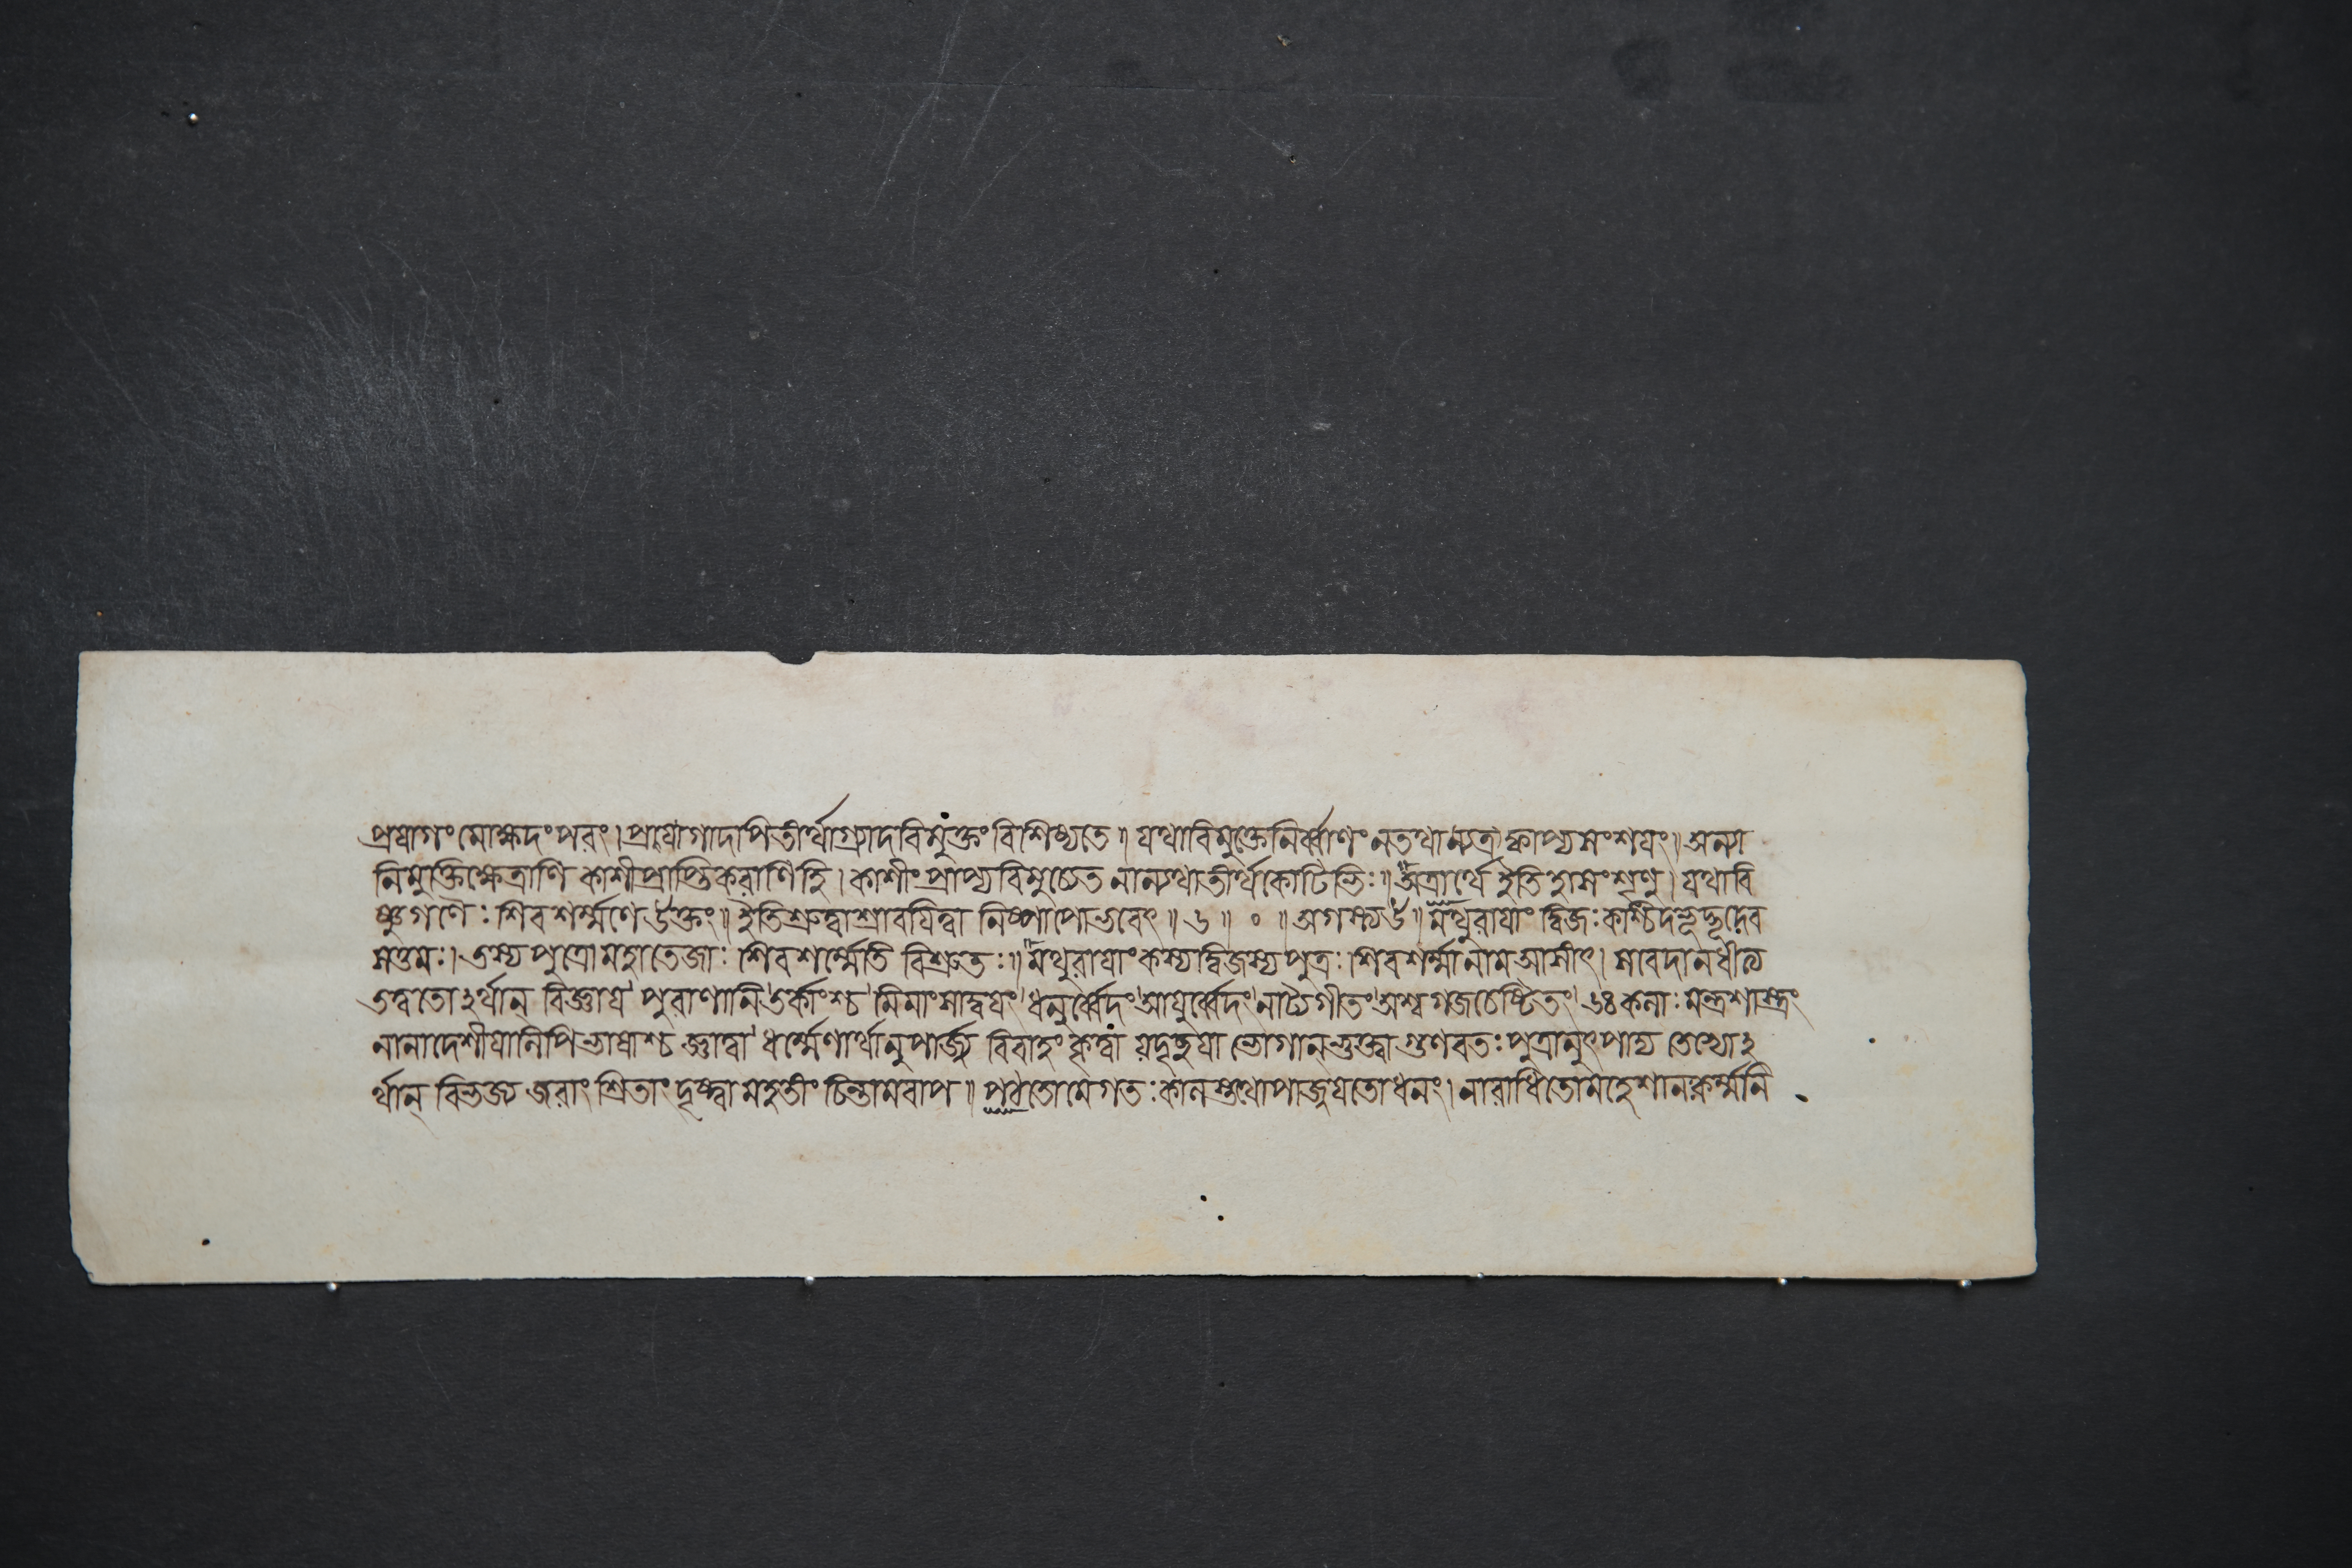 প্রয়াগং মোক্ষদং পরং। প্রয়াগাদপি তীর্থাগ্র্যাদবিমুক্তং বিশিষ্যতে॥ যথাবিমুক্তে নির্ব্বাণং ন তথান্যত্র ক্বাপ্যসংশয়ং॥ অন্যা
নি মুক্তিক্ষেত্রাণি কাশীপ্রাপ্তিকরাণি হি। কাশীং প্রাপ্য বিমুচ্যেত নান্যথা তীর্থকোটিভিঃ॥ অত্রার্থে ইতিহাসং শৃণু। যথা বি
ষ্ণুগণৈঃ শিবশর্ম্মণে উক্তং॥ ইতি শ্রুত্বা শ্রাবয়িত্বা নিষ্পাপো ভবেৎ॥ ৬॥ ॰॥ অগস্ত্য উ॥ মথুরায়াং দ্বিজঃ কশ্চিদভূদ্ভূদেব
সত্তমঃ। তস্য পুত্রো মহাতেজাঃ শিবশর্ম্মেতি বিশ্রুতঃ॥ মথুরায়াং কস্যা দ্বিজস্য পুত্রঃ। শিবশর্ম্মা নাম আসীৎ। স বেদানধীত্য
তত্বতোঽর্থান্ বিজ্ঞায় পুরাণানি তর্কাংশ্চ মিমাংসাদ্বয়ং ধনুর্ব্বেদং আয়ুর্ব্বেদং নাট্যৈগীতং অশ্বগজচেষ্টিতং ৬৪ কলাঃ মন্ত্রশাস্ত্রং
নানাদেশীয়া লিপিভাষাশ্চ জ্ঞাত্বা ধর্ম্মেণার্থানুপার্জ্য বিবাহং কৃত্বা যদৃচ্ছয়া ভোগান ভুক্ত্বা গুণবতঃ পুত্রানুৎপাদ্য তেভ্যোঽ
র্থান্ বিভজ্য জরাং শ্রিতাং দৃষ্ট্বা মহতীং চিন্তামবাপ॥ পঠতো মে গতঃ কালস্তথোপার্জয়তো ধনং। নারাধিতো মহেশানঃ কর্ম্মনি